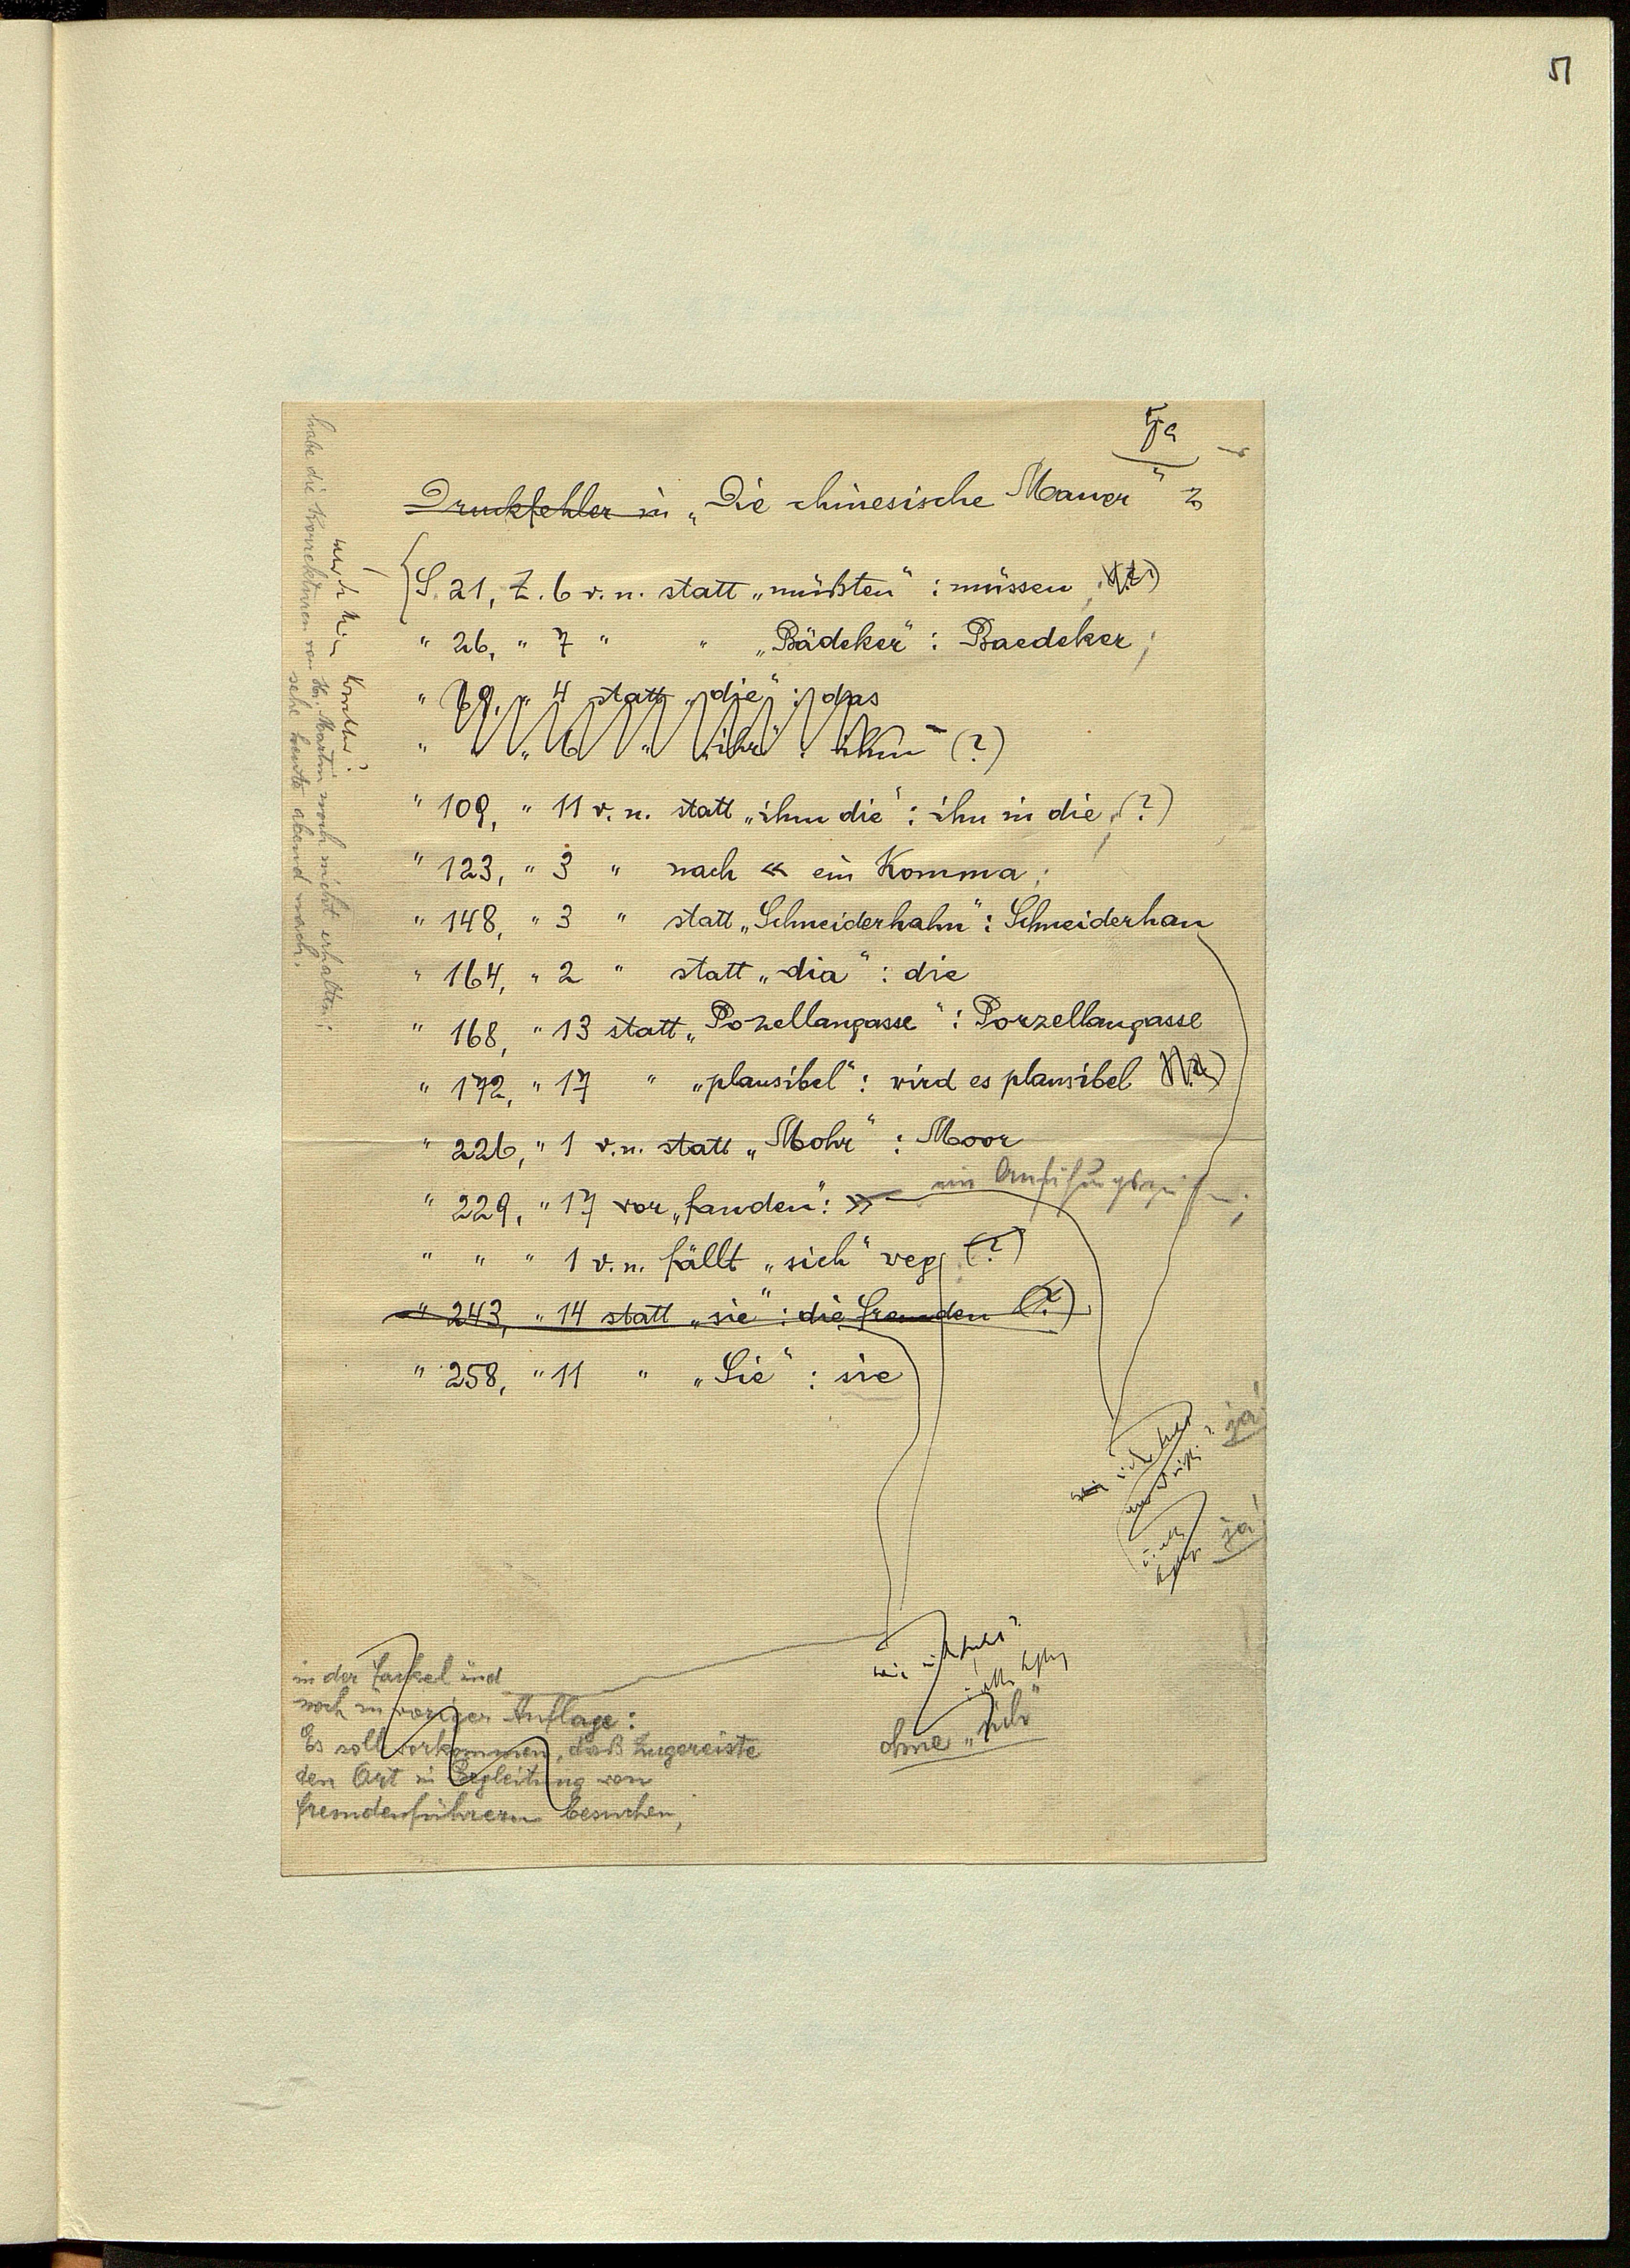 51
5a
Druckfehler in „Die chinesische Mauer“
S. 21, Z. 6 v. u. statt „müßten“ : müssen ;
" 26, " 7 " " „Bädeker“ : Baedeker ;
" 69, " 4 statt „die“ : das
" " " 6 " „ihr“ : ihm (?)
" 109, " 11 v. u. statt „ihm die“ : ihn in die, (?)
" 123, " 3 " nach « ein Komma ;
" 148, " 3 " statt „Schneiderhahn“ : Schneiderhan
" 164, " 2 " statt „dia“ : die
" 168, " 13 statt „Pozellangasse“ : Porzellangasse
" 172, " 17 " „plausibel“ : wird es plausibel (?)
" 226, " 1 v. u. statt „Mohr“ : Moor
" 229, " 17 vor „fanden“ : » ein Anführungszeichen ;
" " " 1 v. u. fällt „sich“ weg (?)
" 243, " 14 statt „sie“ : die Fremden (?)
" 258, " 11 " „Sie“ : sie
ja!
ja!
wie
ohne „sich“
in der Fackel und
noch in voriger Auflage :
Es soll vorkommen, daß Zugereiste
den Ort in Begleitung von
Fremdenführern besuchen,
habe die Korrekturen von Hr. Martin noch nicht erhalten ;
sehe heute abend nach.